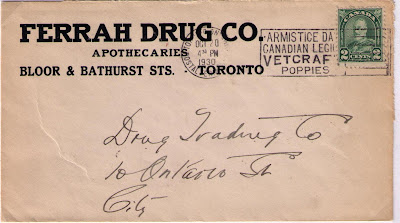 FERRAH DRUG CO.
APOTHECARIES
BLOOR & BATHURST STS. · TORONTO
OCT 20
4 PM
1930
ARMISTICE DA
CANADIAN LEGI
VETCRAF
POPPIES
CANADA
2 CENTS 2
Drug Trading Co
10 Ontario St
City